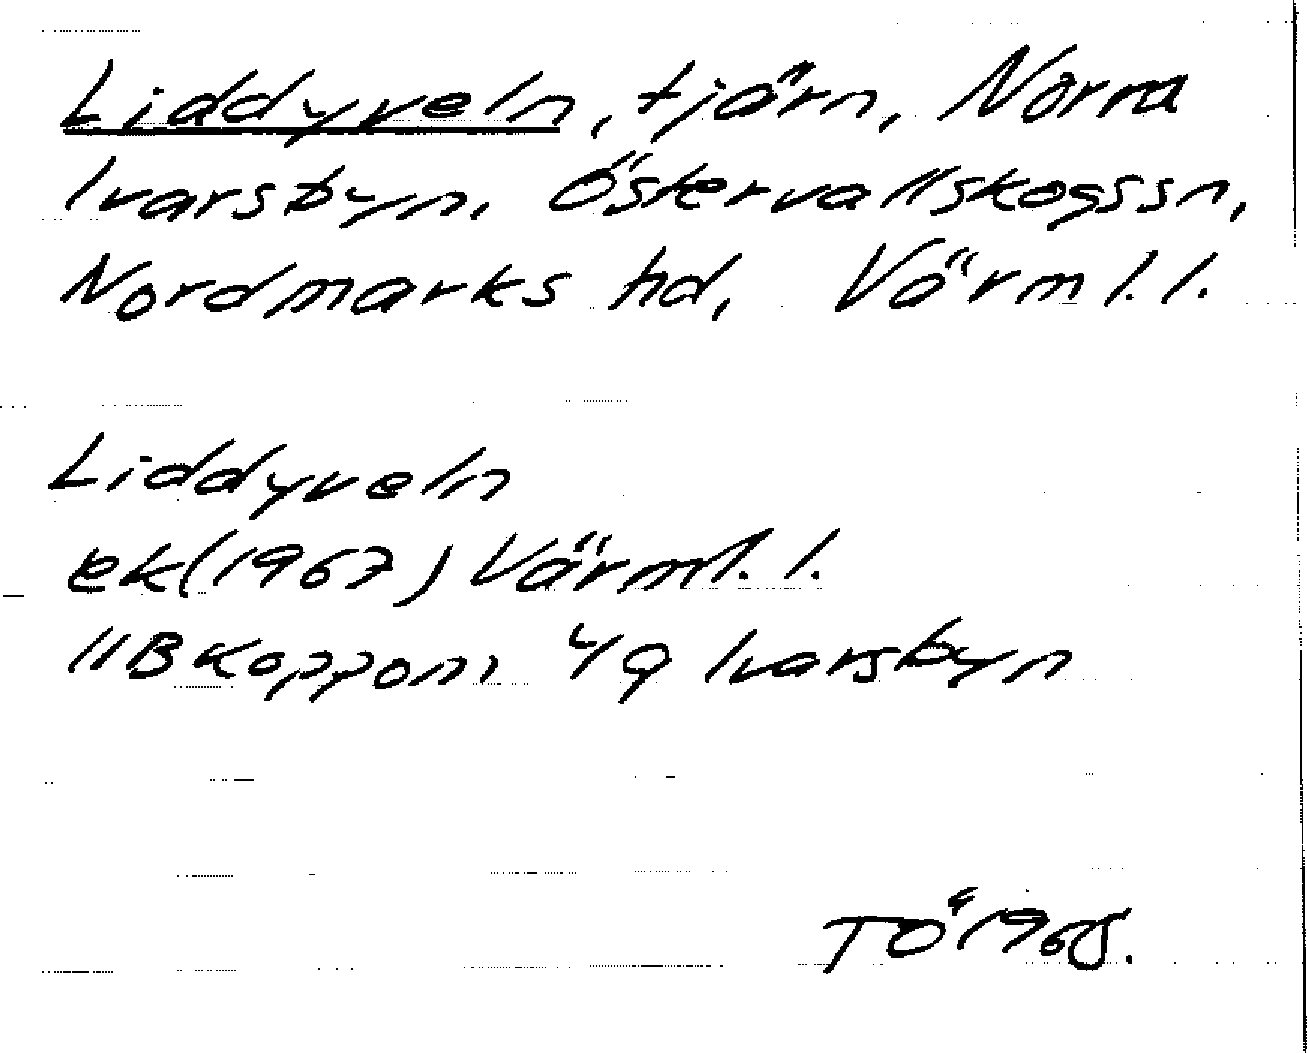 Liddyveln, tjärn, Norra
Ivarsbyn, Östervallskogs sn,
Nordmarks hd, Värml. l.
Liddyveln
ek (1967) Värml. l.
11B Koppom 4g Ivarsbyn
TÖ 1968.